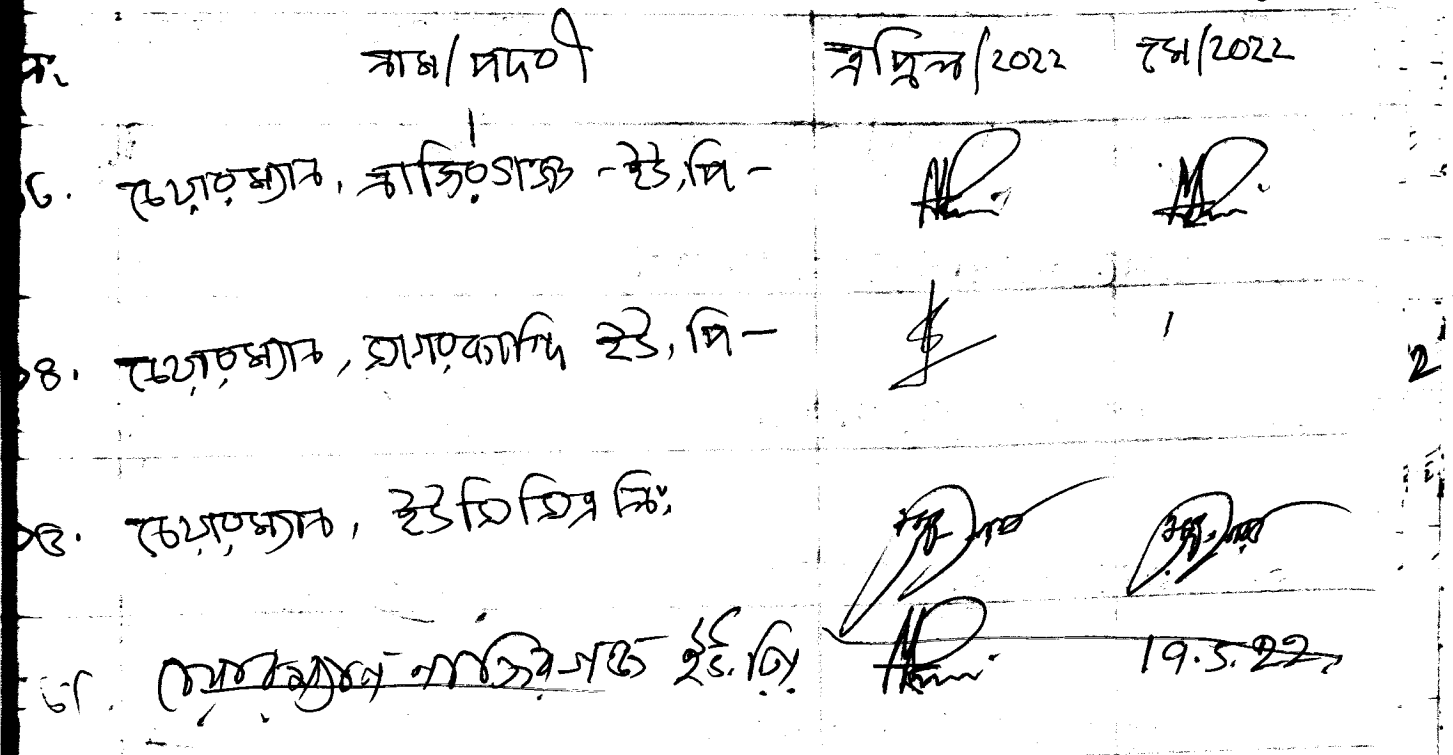 নাম/পদবী এপ্রিল/2022 মে/2022
চেয়ারম্যান, নাজিরগঞ্জ -ইউ,পি-
১৪. চেয়ারম্যান, সাগরকান্দি ইউ, পি-
১৫. চেয়ারম্যান, ইউসিসিএ লিঃ
চেয়ারম্যান নাজিরগঞ্জ ইউ.পি 19.5.22